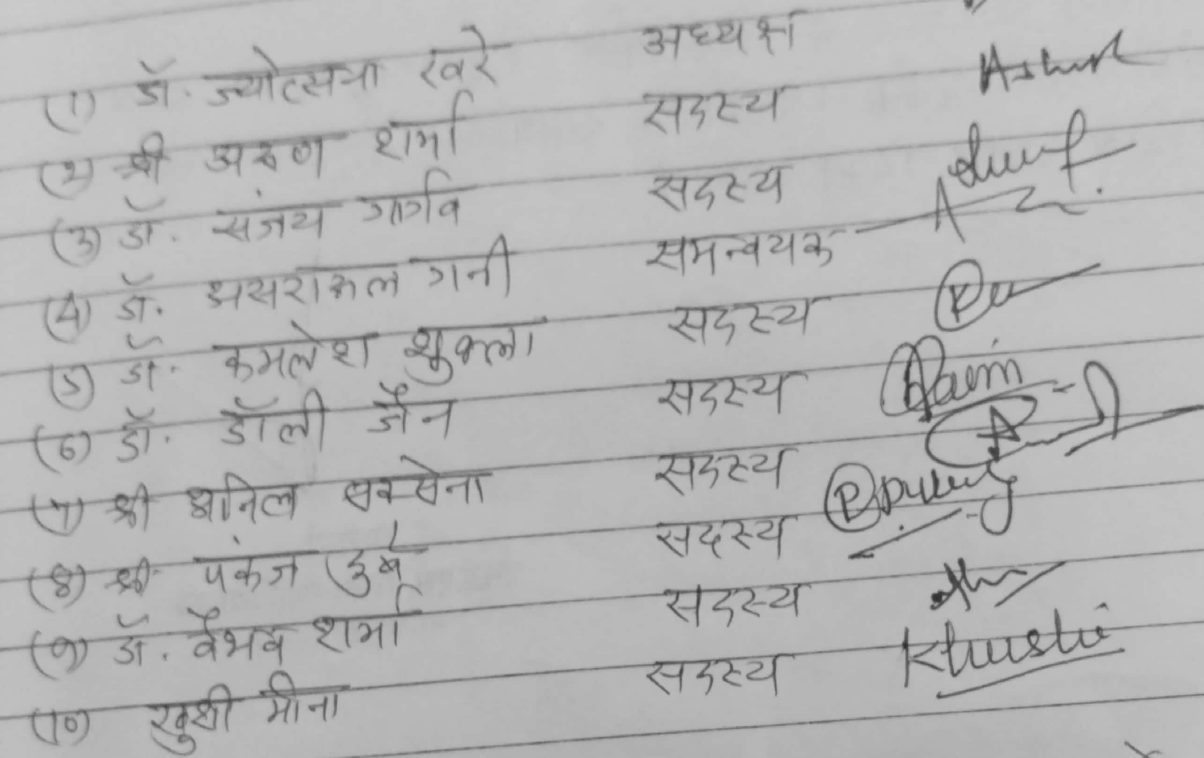 (1) डॉ. ज्योत्सना खरे अध्यक्ष
(2) श्री अरुण शर्मा सदस्य
(3) डॉ. संजय गार्गव सदस्य
(4) डॉ. गनी समन्वयक
(5) डॉ. कमलेश शुक्ला सदस्य
(6) डॉ. डॉली जैन सदस्य
(7) श्री अनिल सक्सेना सदस्य
(8) श्री पंकज दुबे सदस्य
(9) डॉ. वैभव शर्मा सदस्य
(10) खुशी मीना सदस्य Khushi